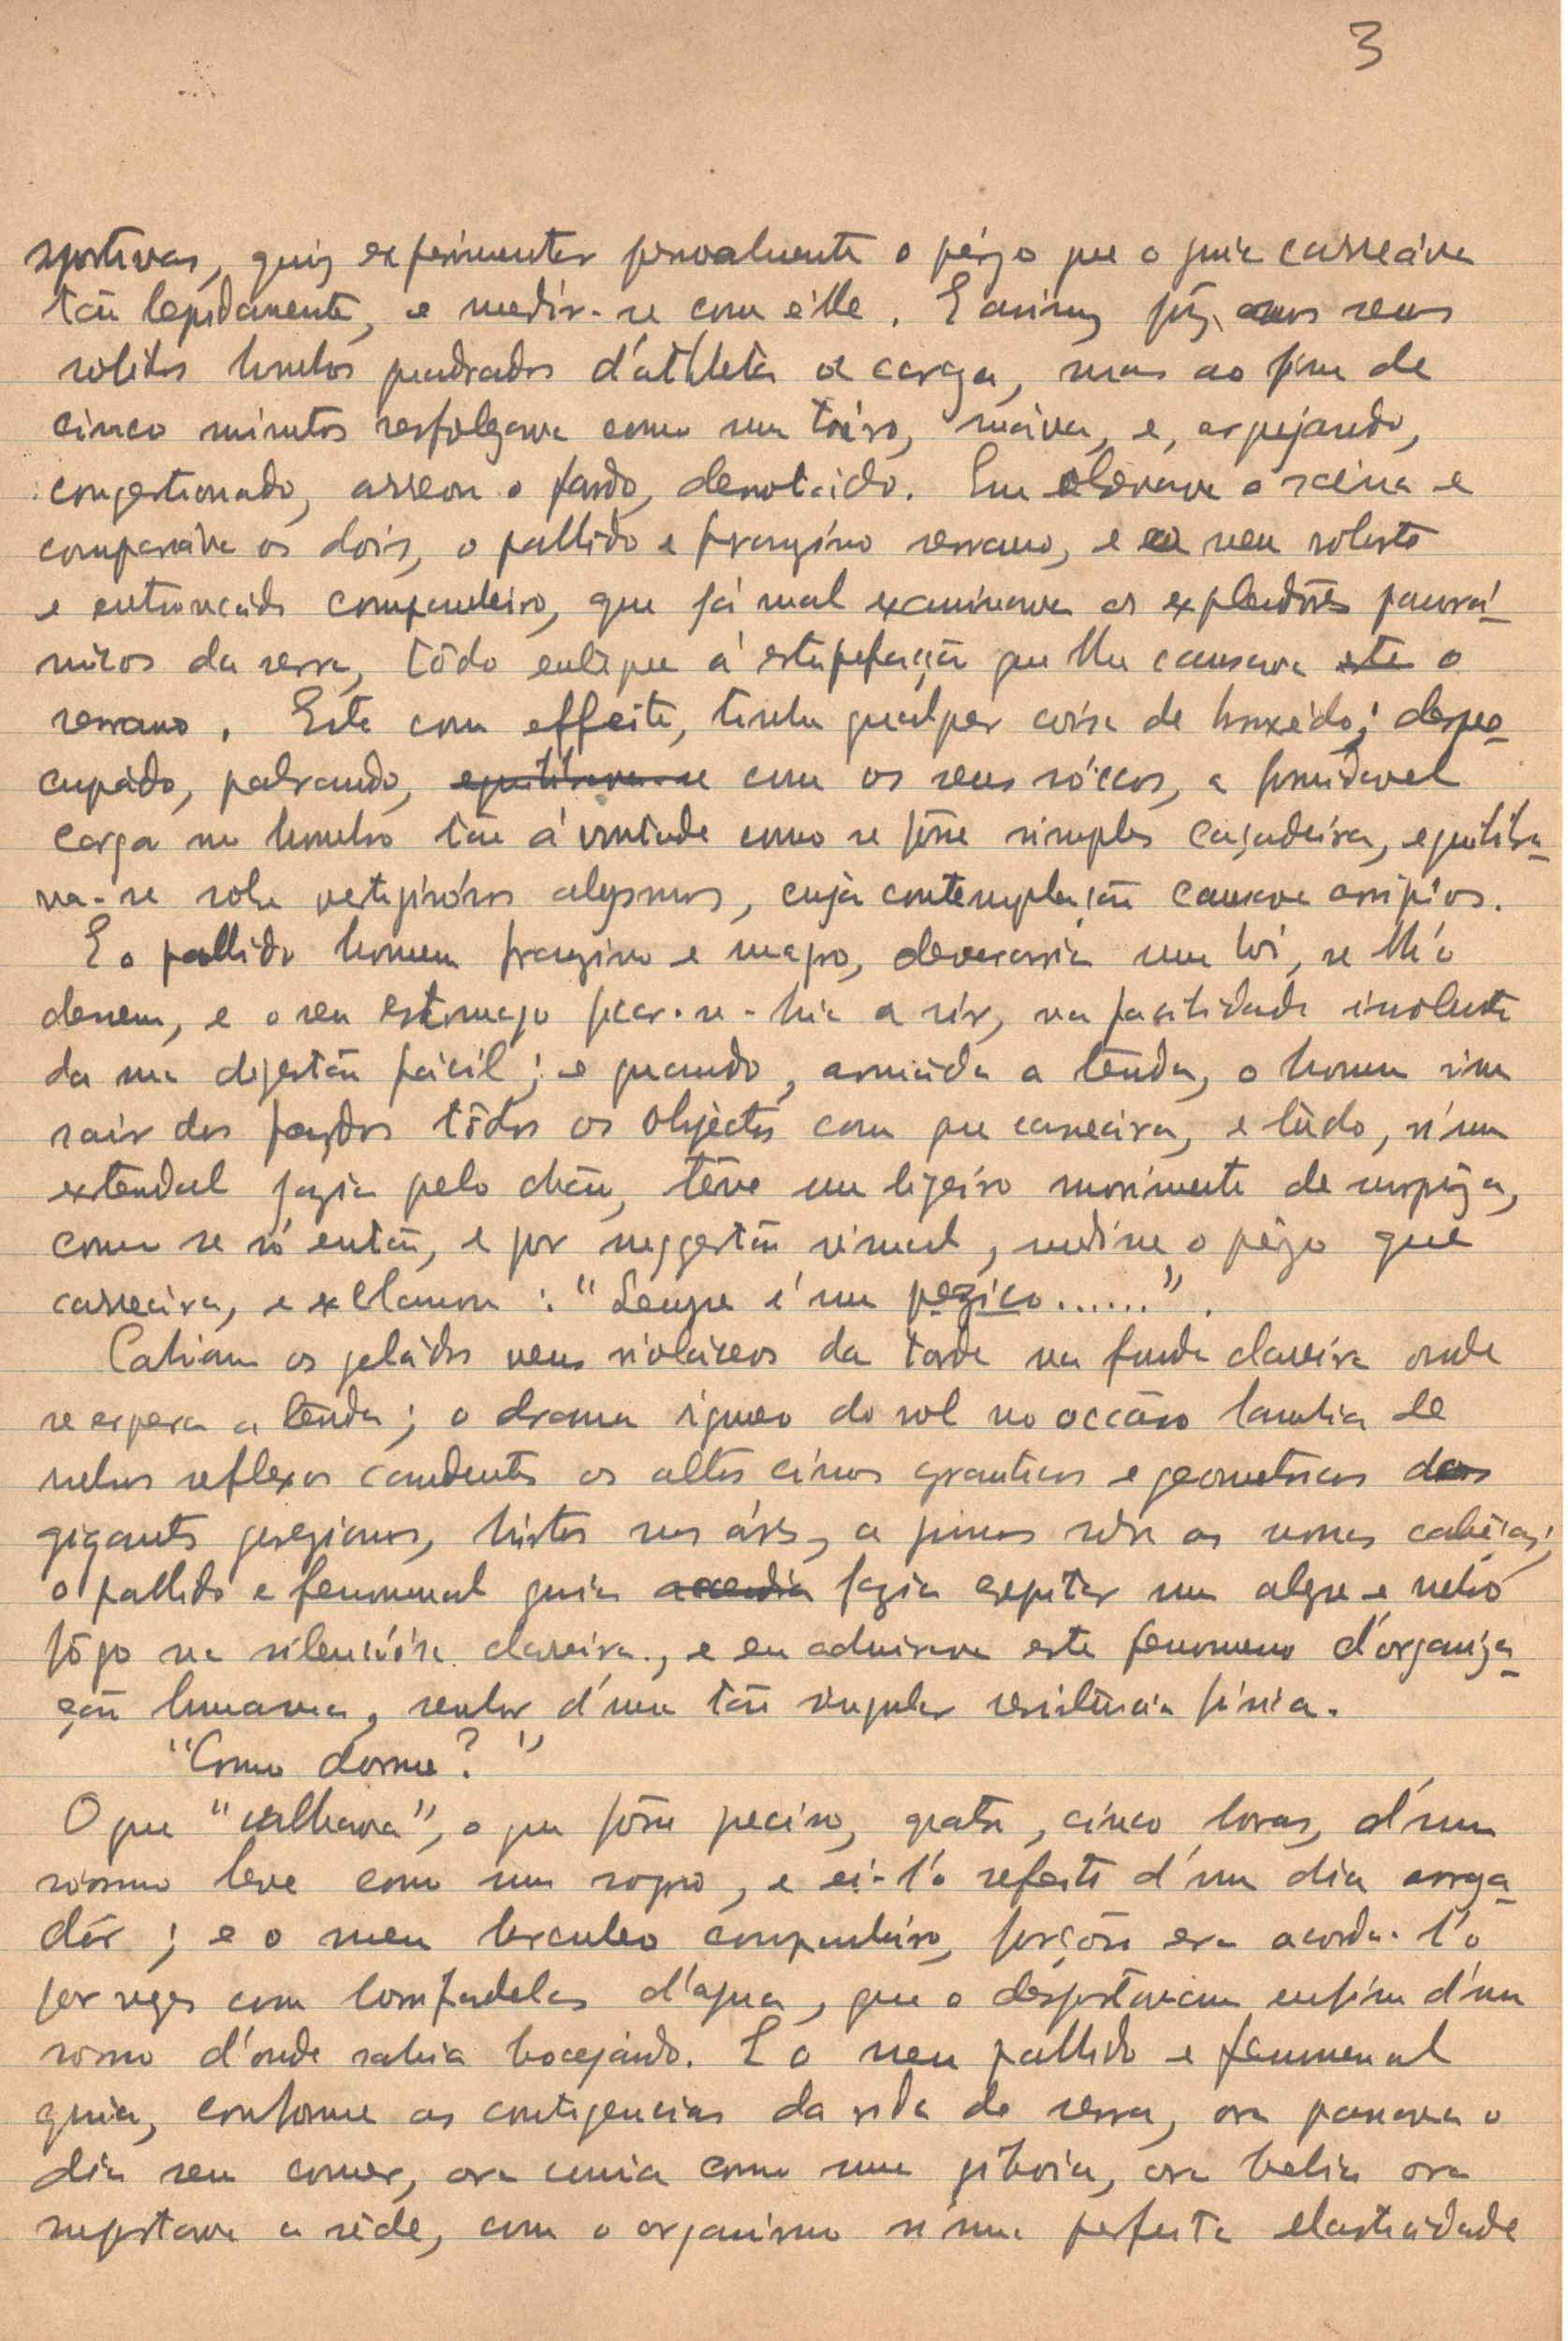 3
sportivas, quiz experimentar pessoalmente o pêzo que o guia carreáva
tão lepidamente, e medir-se com élle. E assim pôz aos seus
solidos hombros quadrados d'athleta a carga, mas ao fim de
cinco minutos resfolegava como um toiro, suáva, e, arquejando,
congestionado, arreou o fardo, derrotádo. Eu observava a scena e
comparáva os dois, o pallido e franzino serrano, e o meu robusto
e entroncádo companheiro, que já mal examinava os explendôres panorá-
micos da serra, tôdo entregue á estupefacção que lhe causava este o
serrano. Este com effeito, tinha qualquer coisa de bruxêdo; despreo-
cupádo, palrando, equilibrava-se com os seus sóccos, a formidavel
carga no hombro tão á vontade como se fôsse simples caçadeira, equilibra-
va-se sobre vertiginósos abysmos, cuja contemplação causava arripios.
E o pallido homem franzino e magro, devoraría um boi, se lh'o
dessem, e o seu estomago ficar-se-hia a rir, na facilidade insolente
da sua digestão fácil; e quando, armáda a tênda, o homem viu
sair dos fardos tôdos os objéctos com que carreára, e tudo, n'um
extendal jazia pelo chão, têve um ligeiro movimento de surprêza,
como se só então, e por suggestão visual, medisse o pêzo que
carreára, e exclamou: "Sempre é um pezico......".
Cahiam os geládos veus violáceos da tarde na funda clareira onde
se erguera a tênda; o drama igneo do sol no occáso lambia de
rubros reflexos candentes os altos cimos graniticos e geometricos dos
gigantes gerezianos, hirtos nos áres, a pinos sobre as nossas cabêças;
o pallido e fenomenal guia accendia fazia crepitar um alegre e rubro
fôgo na silenciósa clareira, e eu admirava este fenomeno d'organiza-
ção humana, senhor d'uma tão singular resistência física.
"Como dorme?"
O que "calhava", o que fôsse preciso, quatro, cinco horas, d'um
sômno leve como um sopro, e ei-l'o refeito d'um dia arraza-
dôr; e o meu herculeo companheiro, forçôso era acorda-l'o
por vezes com lombadelas d'agua, que o despertavam enfim d'um
somno d'onde sahia bocejándo. E o meu pallido e fenomenal
guia, conforme as contigencias da vida de serra, ora passava o
dia sem comer, ora comia como uma giboia, ora bebia ora
suportava a sêde, com o organismo n'uma perfeita elasticidade